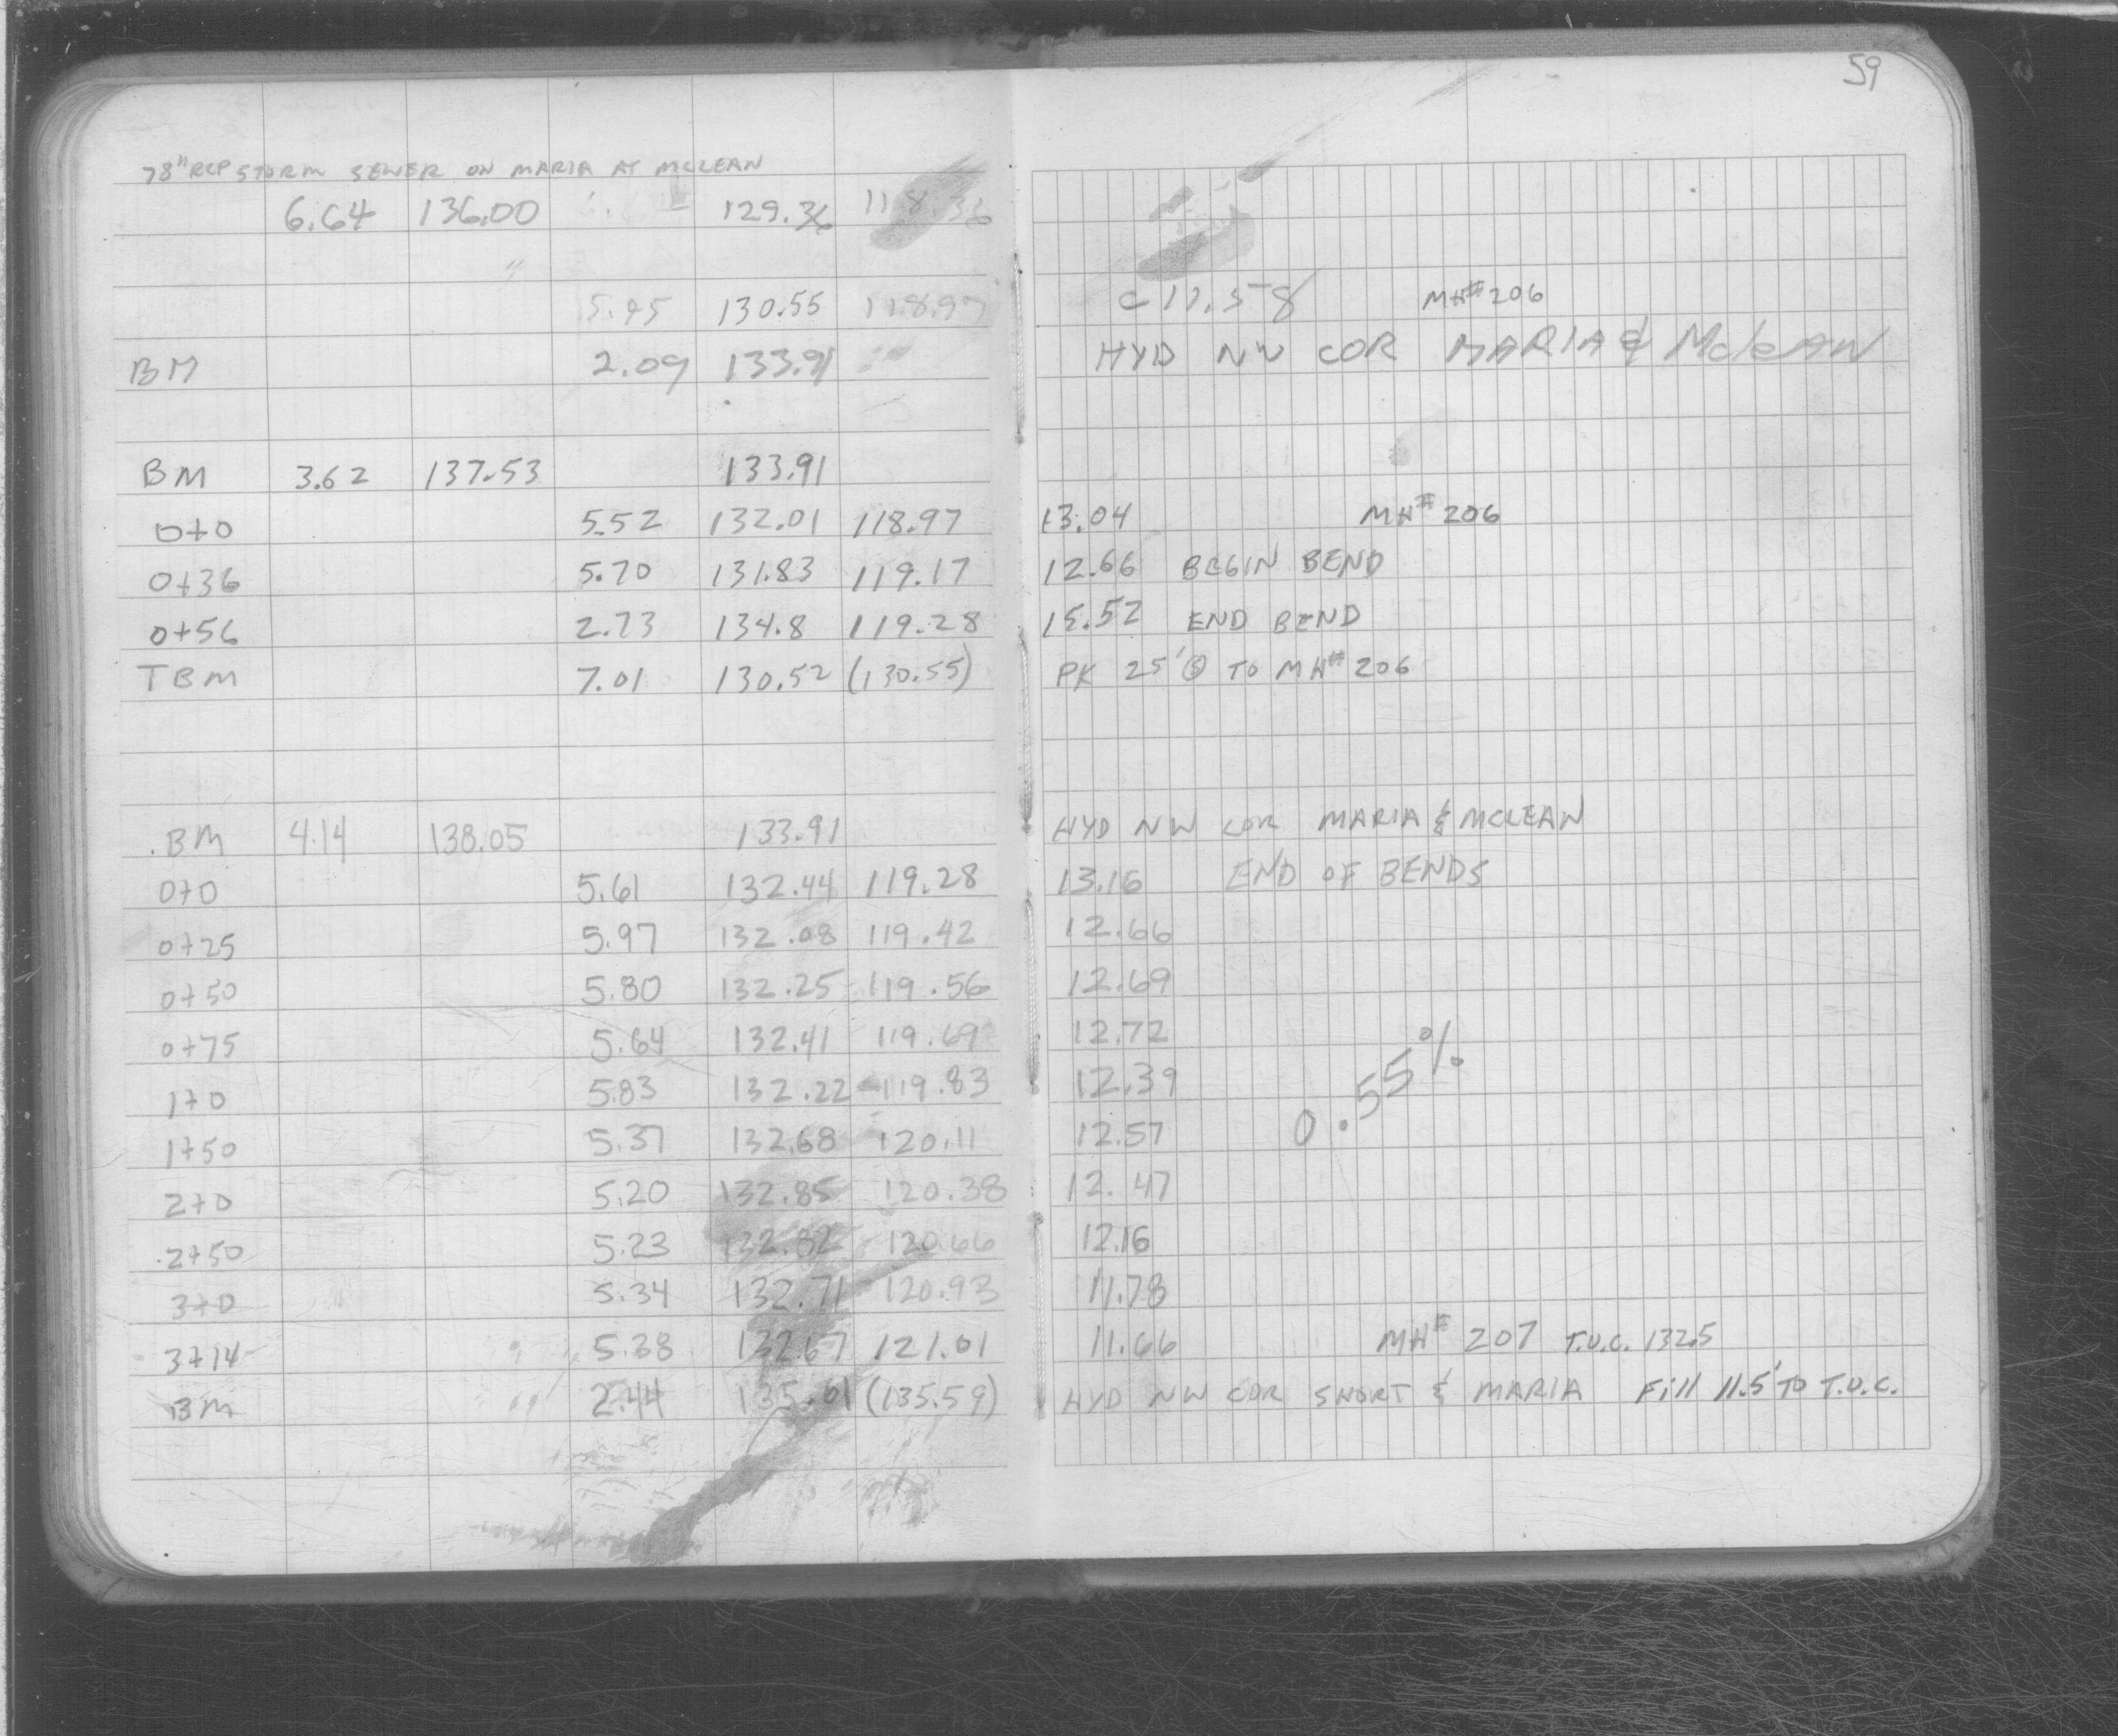 59
78" RCP STORM SEWER ON MARIA AT MCLEAN
6.64 136.00 129.36 118.36
5.45 130.55 118.97 C 11.58 MH# 206
BM 2.09 133.91 HYD NW COR MARIA & McleAN
BM 3.62 137.53 133.91
0+0 5.52 132.01 118.97 13.04 MH# 206
0+36 5.70 131.83 119.17 12.66 BEGIN BEND
0+56 2.73 134.8 119.28 15.52 END BEND
TBM 7.01 130.52 (130.55) PK 25' TO MH# 206
BM 4.14 138.05 133.91 HYD NW COR MARIA & MCLEAN
0+0 5.61 132.44 119.28 13.16 END OF BENDS
0+25 5.97 132.08 119.42 12.66
0+50 5.80 132.25 119.56 12.69
0+75 5.64 132.41 119.69 12.72
1+0 5.83 132.22 119.83 12.39
0.55%
1+50 5.37 132.68 120.11 12.57
2+0 5.20 132.85 120.38 12.47
2+50 5.23 132.82 120.66 12.16
3+0 5.34 132.71 120.93 11.78
3+14 5.38 132.67 121.01 11.66 MH# 207 T.O.C. 132.5
BM 2.44 135.61 (135.59) HYD NW COR SHORT & MARIA Fill 11.5' TO T.O.C.